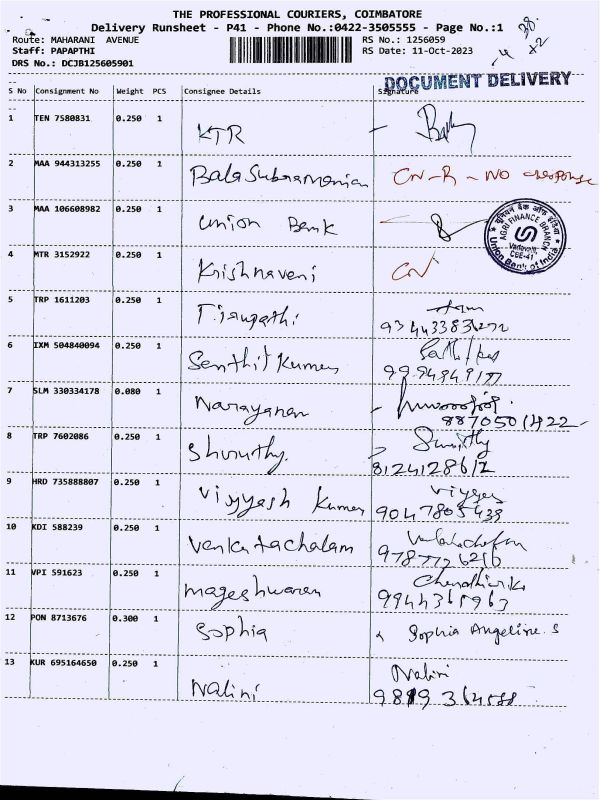 THE PROFESSIONAL COURIERS, COIMBATORE
Delivery Runsheet - P41 - Phone No.:0422-3505555 - Page No.:1
Route: MAHARANI AVENUE
RS No.: 1256059
Staff: PAPAPTHI
RS Date: 11-Oct-2023
DRS No.: DCJB125605901
DOCUMENT DELIVERY
S No Consignment No Weight PCS Consignee Details Signature
1 TEN 7580831 0.250 1 KTR
2 MAA 944313255 0.250 1 Balasubramanian CN-R - NO response
3 MAA 106608982 0.250 1 Union Bank
AGRI FINANCE BRANCH
Vadavalli
CBE-41
Union Bank of India
4 MTR 3152922 0.250 1 Krishnaveni CN
5 TRP 1611203 0.250 1 Tirupathi
6 IXM 504840094 0.250 1 Senthil Kumar
7 SLM 330334178 0.080 1 Narayanan
8870501422
8 TRP 7602086 0.250 1 Shruthy
8124128612
9 HRD 735888807 0.250 1 Viyyesh Kumar
9047805439
10 KDI 588239 0.250 1 Venkatachalam
11 VPI 591623 0.250 1 Mageshwaran
9944365963
12 PON 8713676 0.300 1 Sophia Sophia Angeline S
13 KUR 695164650 0.250 1 Nalini Nalini